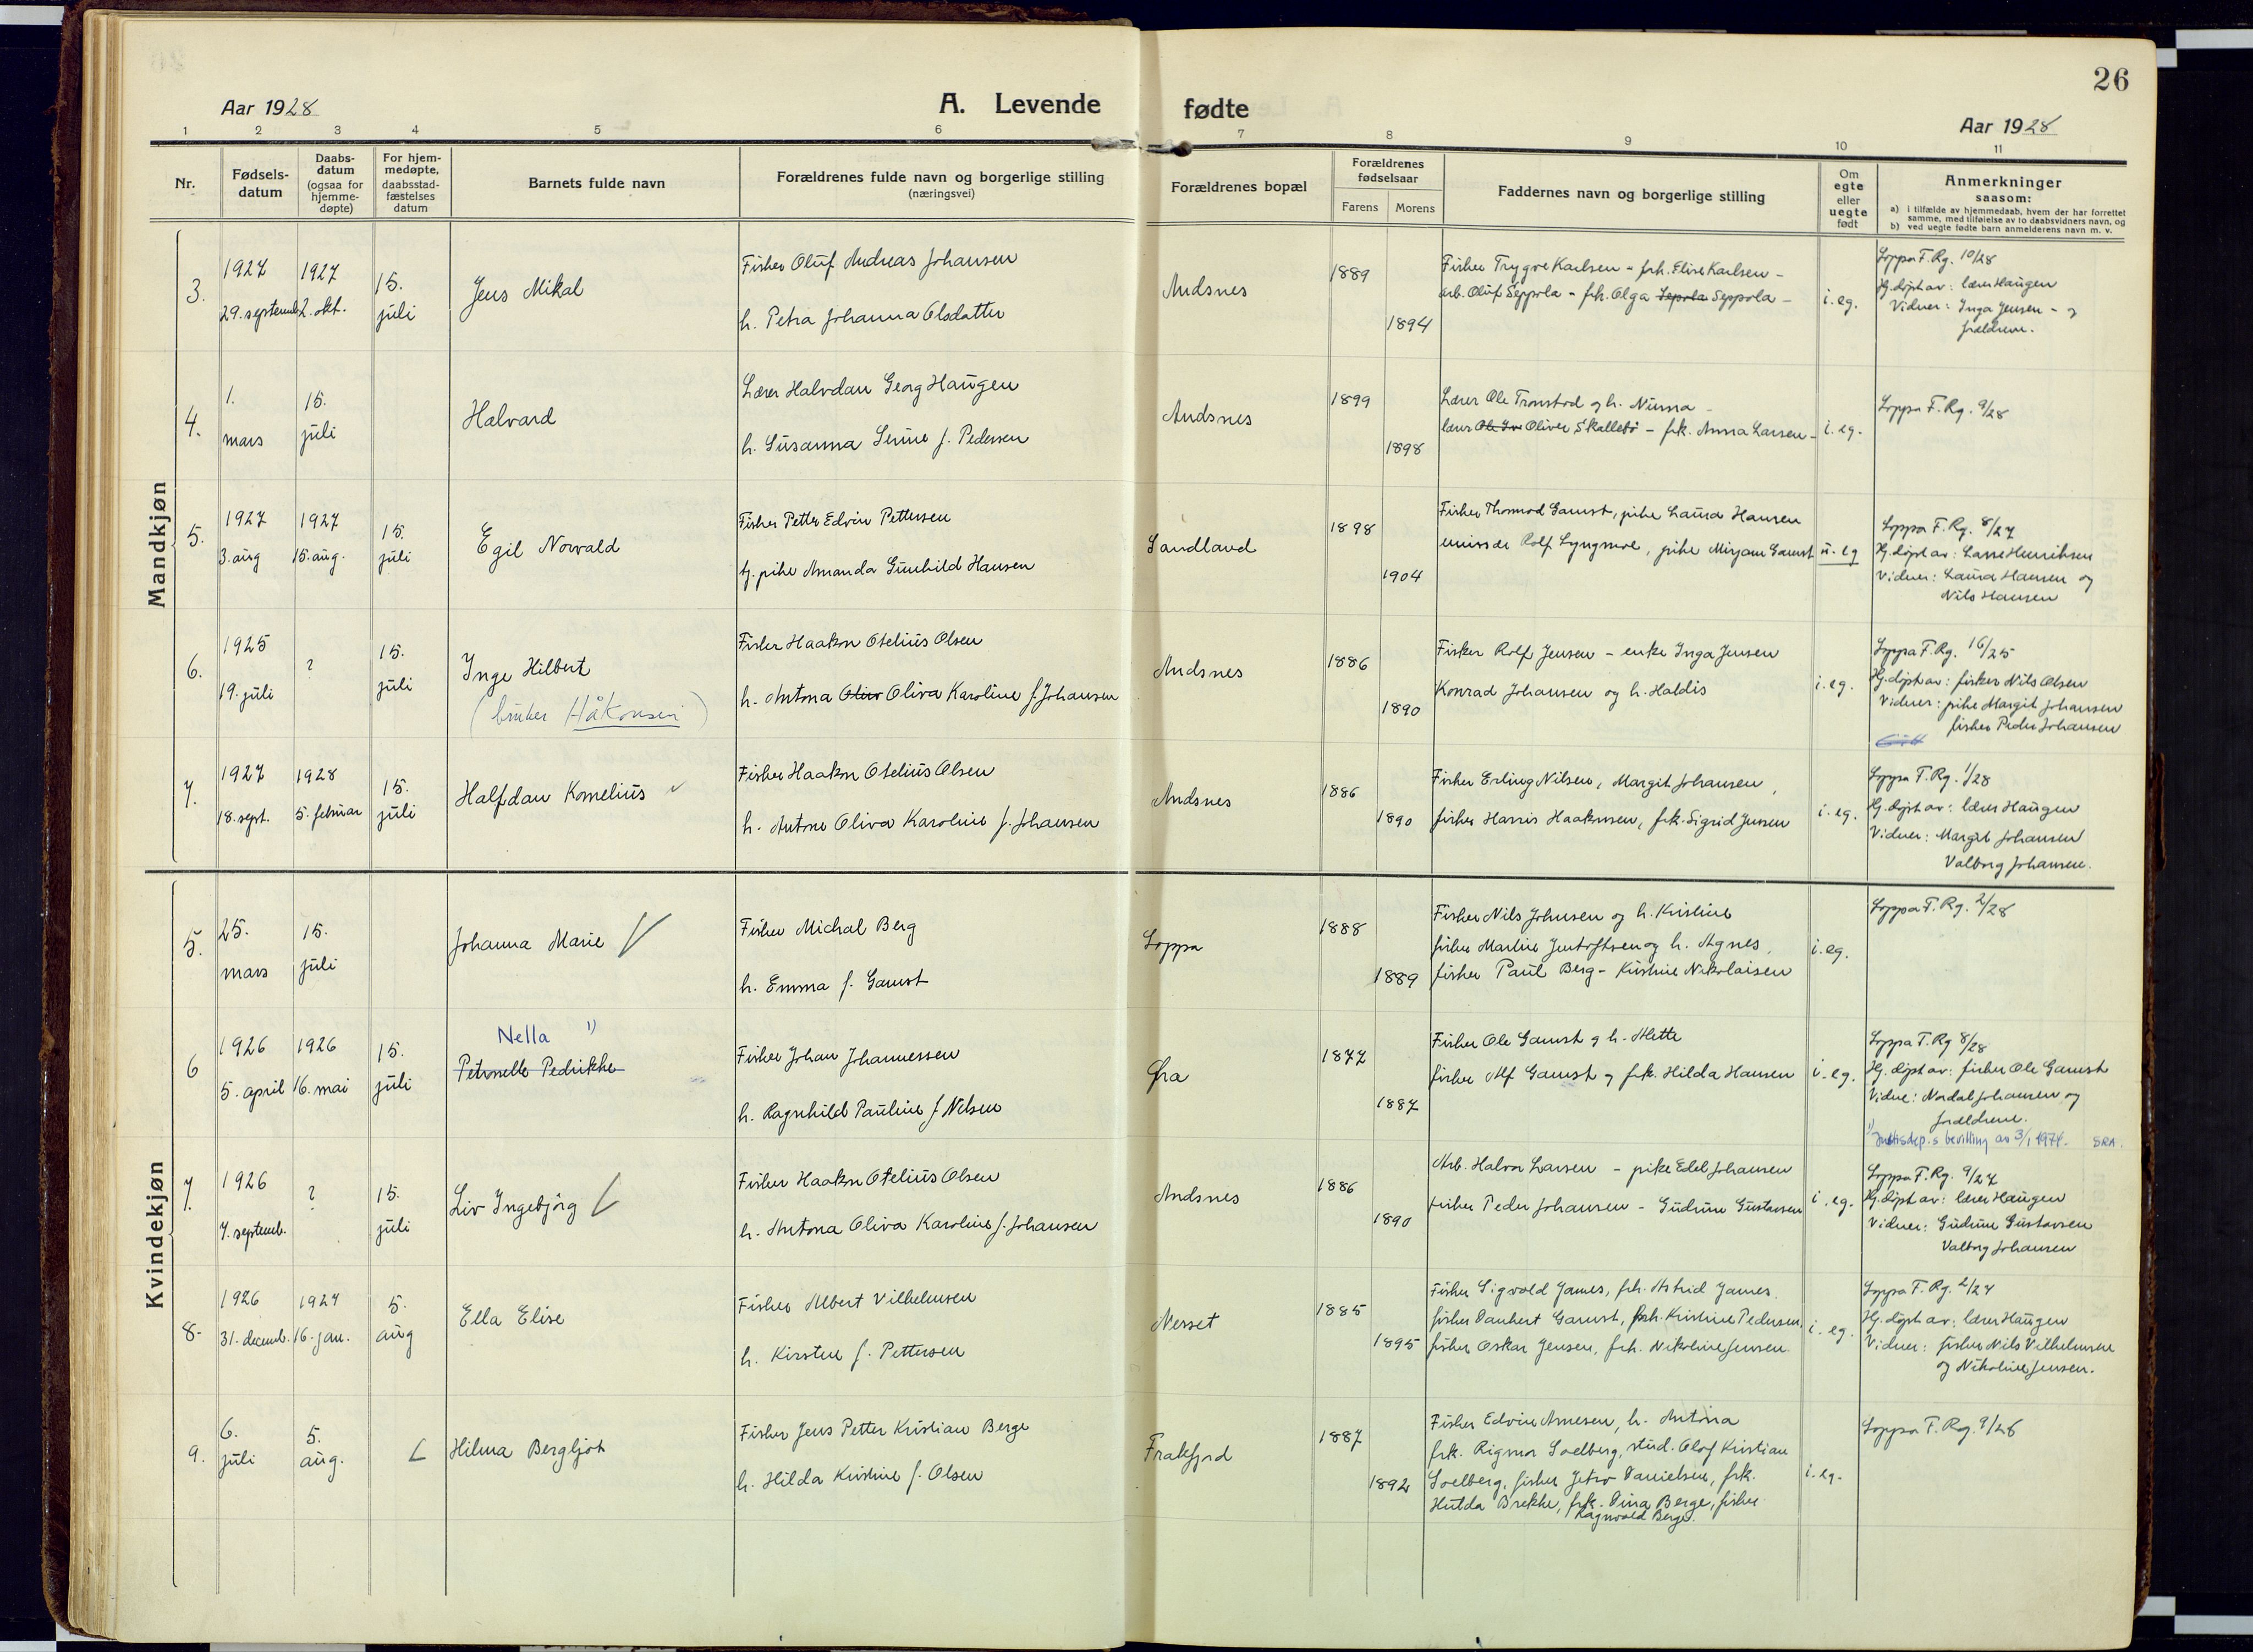 26
Aar 1928
A. Levende fødte
Aar 1928
1 2 3 4 5 6 7 8 9 10 11
Nr.
Fødsels-
datum
Daabs-
datum
(ogsaa for
hjemme-
døpte)
For hjem-
medøpte,
daabsstad-
fæstelses
datum
Barnets fulde navn
Forældrenes fulde navn og borgerlige stilling
(næringsvei)
Forældrenes bopæl
Forældrenes
fødselsaar
Farens Morens
Faddernes navn og borgerlige stilling
Om
egte
eller
uegte
født
Anmerkninger
saasom:
a) i tilfælde av hjemmedaab, hvem der har forrettet
samme, med tilføielse av to daabsvidners navn, og
b) ved uegte fødte barn anmelderens navn m. v.
Mandkjøn
3.
1927
29. septemb.
1927
2. okt.
15.
juli
Jens Mikal
Fisker Oluf Andreas Johansen
h. Petra Johanna Olsdatter
Andsnes
1889
1894
Fisker Trygve Karlsen - frk. Elise Karlsen -
arb. Oluf Seppola - frk. Olga Sepola Seppola -
i. eg.
Loppa F. Rg. 10/28
Hj. døpt av: lærer Haugen
Vidner: Inga Jensen - og
forældrene.
4.
1.
mars
15.
juli
Halvard
Lærer Halvdan Georg Haugen
h. Susanna Serine f. Pedersen
Andsnes
1899
1898
Lærer Ole Tronstad og h. Numa -
lærer Oliver Skallebö - frk. Anna Larsen -
i. eg.
Loppa F. Rg. 9/28
5.
1927
3. aug
1927
15. aug.
15.
juli
Egil Norvald
Fisker Petter Edvin Pettersen
tj. pike Amanda Gunhild Hansen
Sandland
1898
1904
Fisker Thormod Gamst, pike Laura Hansen
emissær Rolf Lyngmoe, pike Mirjam Gamst
u. eg
Loppa F. Rg. 8/27
Hj. døpt av: Lasse Henriksen
Vidner: Laura Hansen og
Nils Hansen
6.
1925
19. juli
?
15.
juli
Inge Hilbert
(bruker Håkonsen)
Fisker Haakon Otelius Olsen
h. Antona Oliv Oliva Karoline f. Johansen
Andsnes
1886
1890
Fisker Rolf Jensen - enke Inga Jensen
Konrad Johansen og h. Haldis
i. eg.
Loppa F. Rg. 16/25
Hj. døpt av: fisker Nils Olsen
Vidner: pike Margit Johansen
fisker Peder Johansen
7.
1927
18. sept.
1928
5. februar
15.
juli
Halfdan Kornelius
Fisker Haakon Otelius Olsen
h. Antone Oliva Karoline f. Johansen
Andsnes
1886
1890
Fisker Erling Nilsen, Margit Johansen,
fisker Harris Haakonsen, frk. Sigrid Jensen
i. eg.
Loppa F. Rg. 1/28
Hj. døpt av: lærer Haugen
Vidner: Margit Johansen
Valborg Johansen.
Kvindekjøn
5.
25.
mars
15.
juli
Johanna Marie
Fisker Michal Berg
h. Emma f. Gamst
Loppa
1888
1889
Fisker Nils Johnsen og h. Kristine
fisker Martin Jentoftsen og h. Agnes,
fisker Paul Berg - Kristine Nikolaisen
i. eg.
Loppa F. Rg. 2/28
6
1926
5. april
1926
16. mai
15.
juli
Nella 1)
Petronelle Pedrikke
Fisker Johan Johannessen
h. Ragnhild Pauline f. Nilsen
Øra
1877
1887
Fisker Ole Gamst og h. Mette
fisker Alf Gamst og frk. Hilda Hansen
i. eg.
Loppa F. Rg 8/28
Hj. døpt av: fisker Ole Gamst
Vidne: Nordal Johansen og
forældrene.
1) Justisdep.s bevilling av 3/1 1974. SRA.
7.
1926
7. septemb.
?
15.
juli
Liv Ingebjörg
Fisker Haakon Otelius Olsen
h. Antona Oliva Karoline f. Johansen
Andsnes
1886
1890
Arb. Halvor Larsen - pike Edel Johansen
fisker Peder Johansen - Gudrun Gustavsen
i. eg.
Loppa F. Rg. 9/27
Hj. døpt av: lærer Haugen
Vidner: Gudrun Gustavsen
Valborg Johansen
8.
1926
31. decemb.
1927
16. jan.
5.
aug
Ella Elise
Fisker Albert Vilhelmsen
h. Kirsten f. Pettersen
Nesset
1885
1895
Fisker Sigvald James, frk. Astrid James.
fisker Danbert Gamst, frk. Kristine Pedersen,
fisker Oskar Jensen, frk. Nikoline Jensen.
i. eg.
Loppa F. Rg. 2/27
Hj. døpt av: lærer Haugen
Vidner: fisker Nils Vilhelmsen
og Nikoline Jensen.
9.
6.
juli
5.
aug.
Hilma Bergljot
Fisker Jens Petter Kristian Berge
h. Hilda Kristine f. Olsen
Frakfjord
1887
1892
Fisker Edvin Arnesen, h. Antona
frk. Rigmor Soelberg, stud. Olaf Kristian
Soelberg, fisker Jetro Danielsen, frk.
Hulda Brekke, frk. Dina Berge, fisker
Ragnvald Berge.
i. eg.
Loppa F. Rg. 9/28